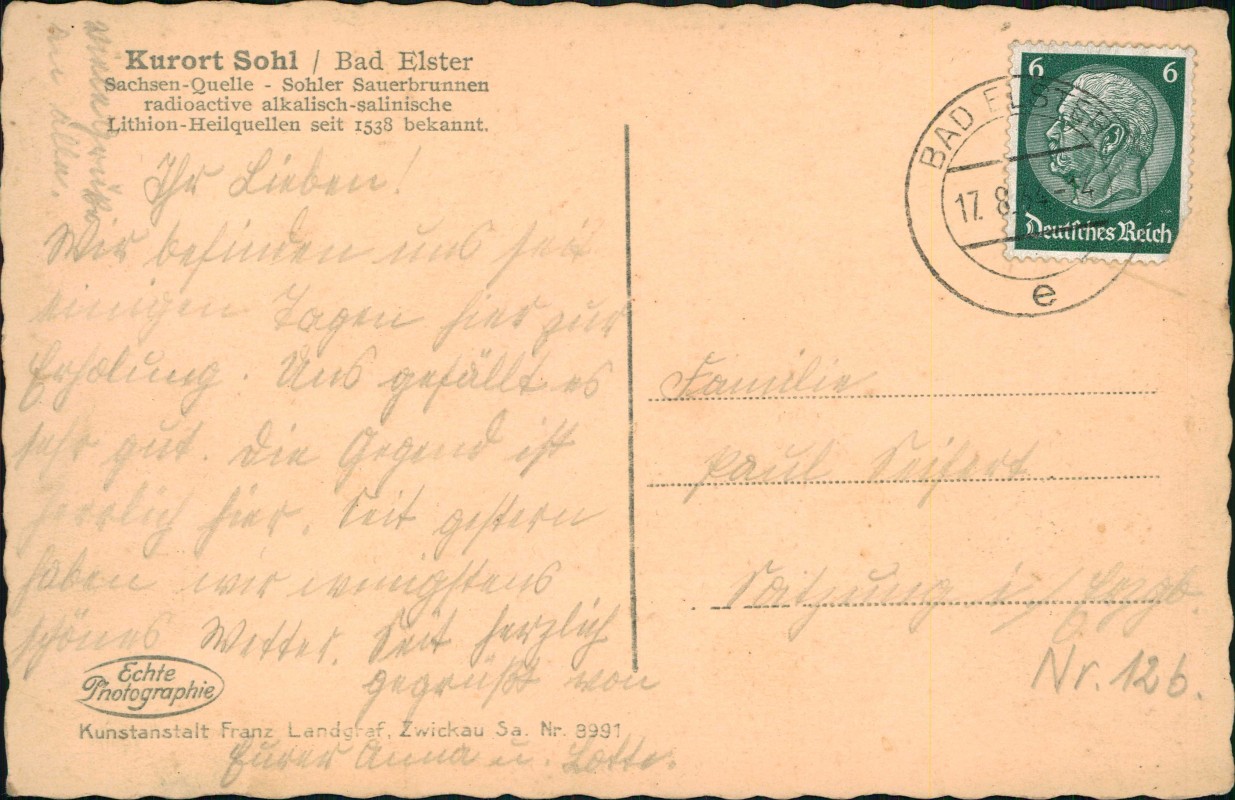 Kurort Sohl / Bad Elster
Sachsen-Quelle - Sohler Sauerbrunnen
radioactive alkalisch-salinische
Lithion-Heilquellen seit 1538 bekannt.
Ihr Lieben!
Wir befinden uns seit
einigen Tagen hier zur
Erholung. Uns gefällt es
sehr gut. Die Gegend ist
herrlich hier. Seit gestern
haben wir wenigstens
schönes Wetter. Seit herzlich
gegrüßt von
Eurer Anna u. Lotte.
viele Grüße
an alle.
Echte
Photographie
Kunstanstalt Franz Landgraf, Zwickau Sa. Nr. 8991
6 6
Deutsches Reich
BAD ELSTER
17. 8.
e
Familie
Paul Seifert
Satzung i/ Erzgb.
Nr. 12b.